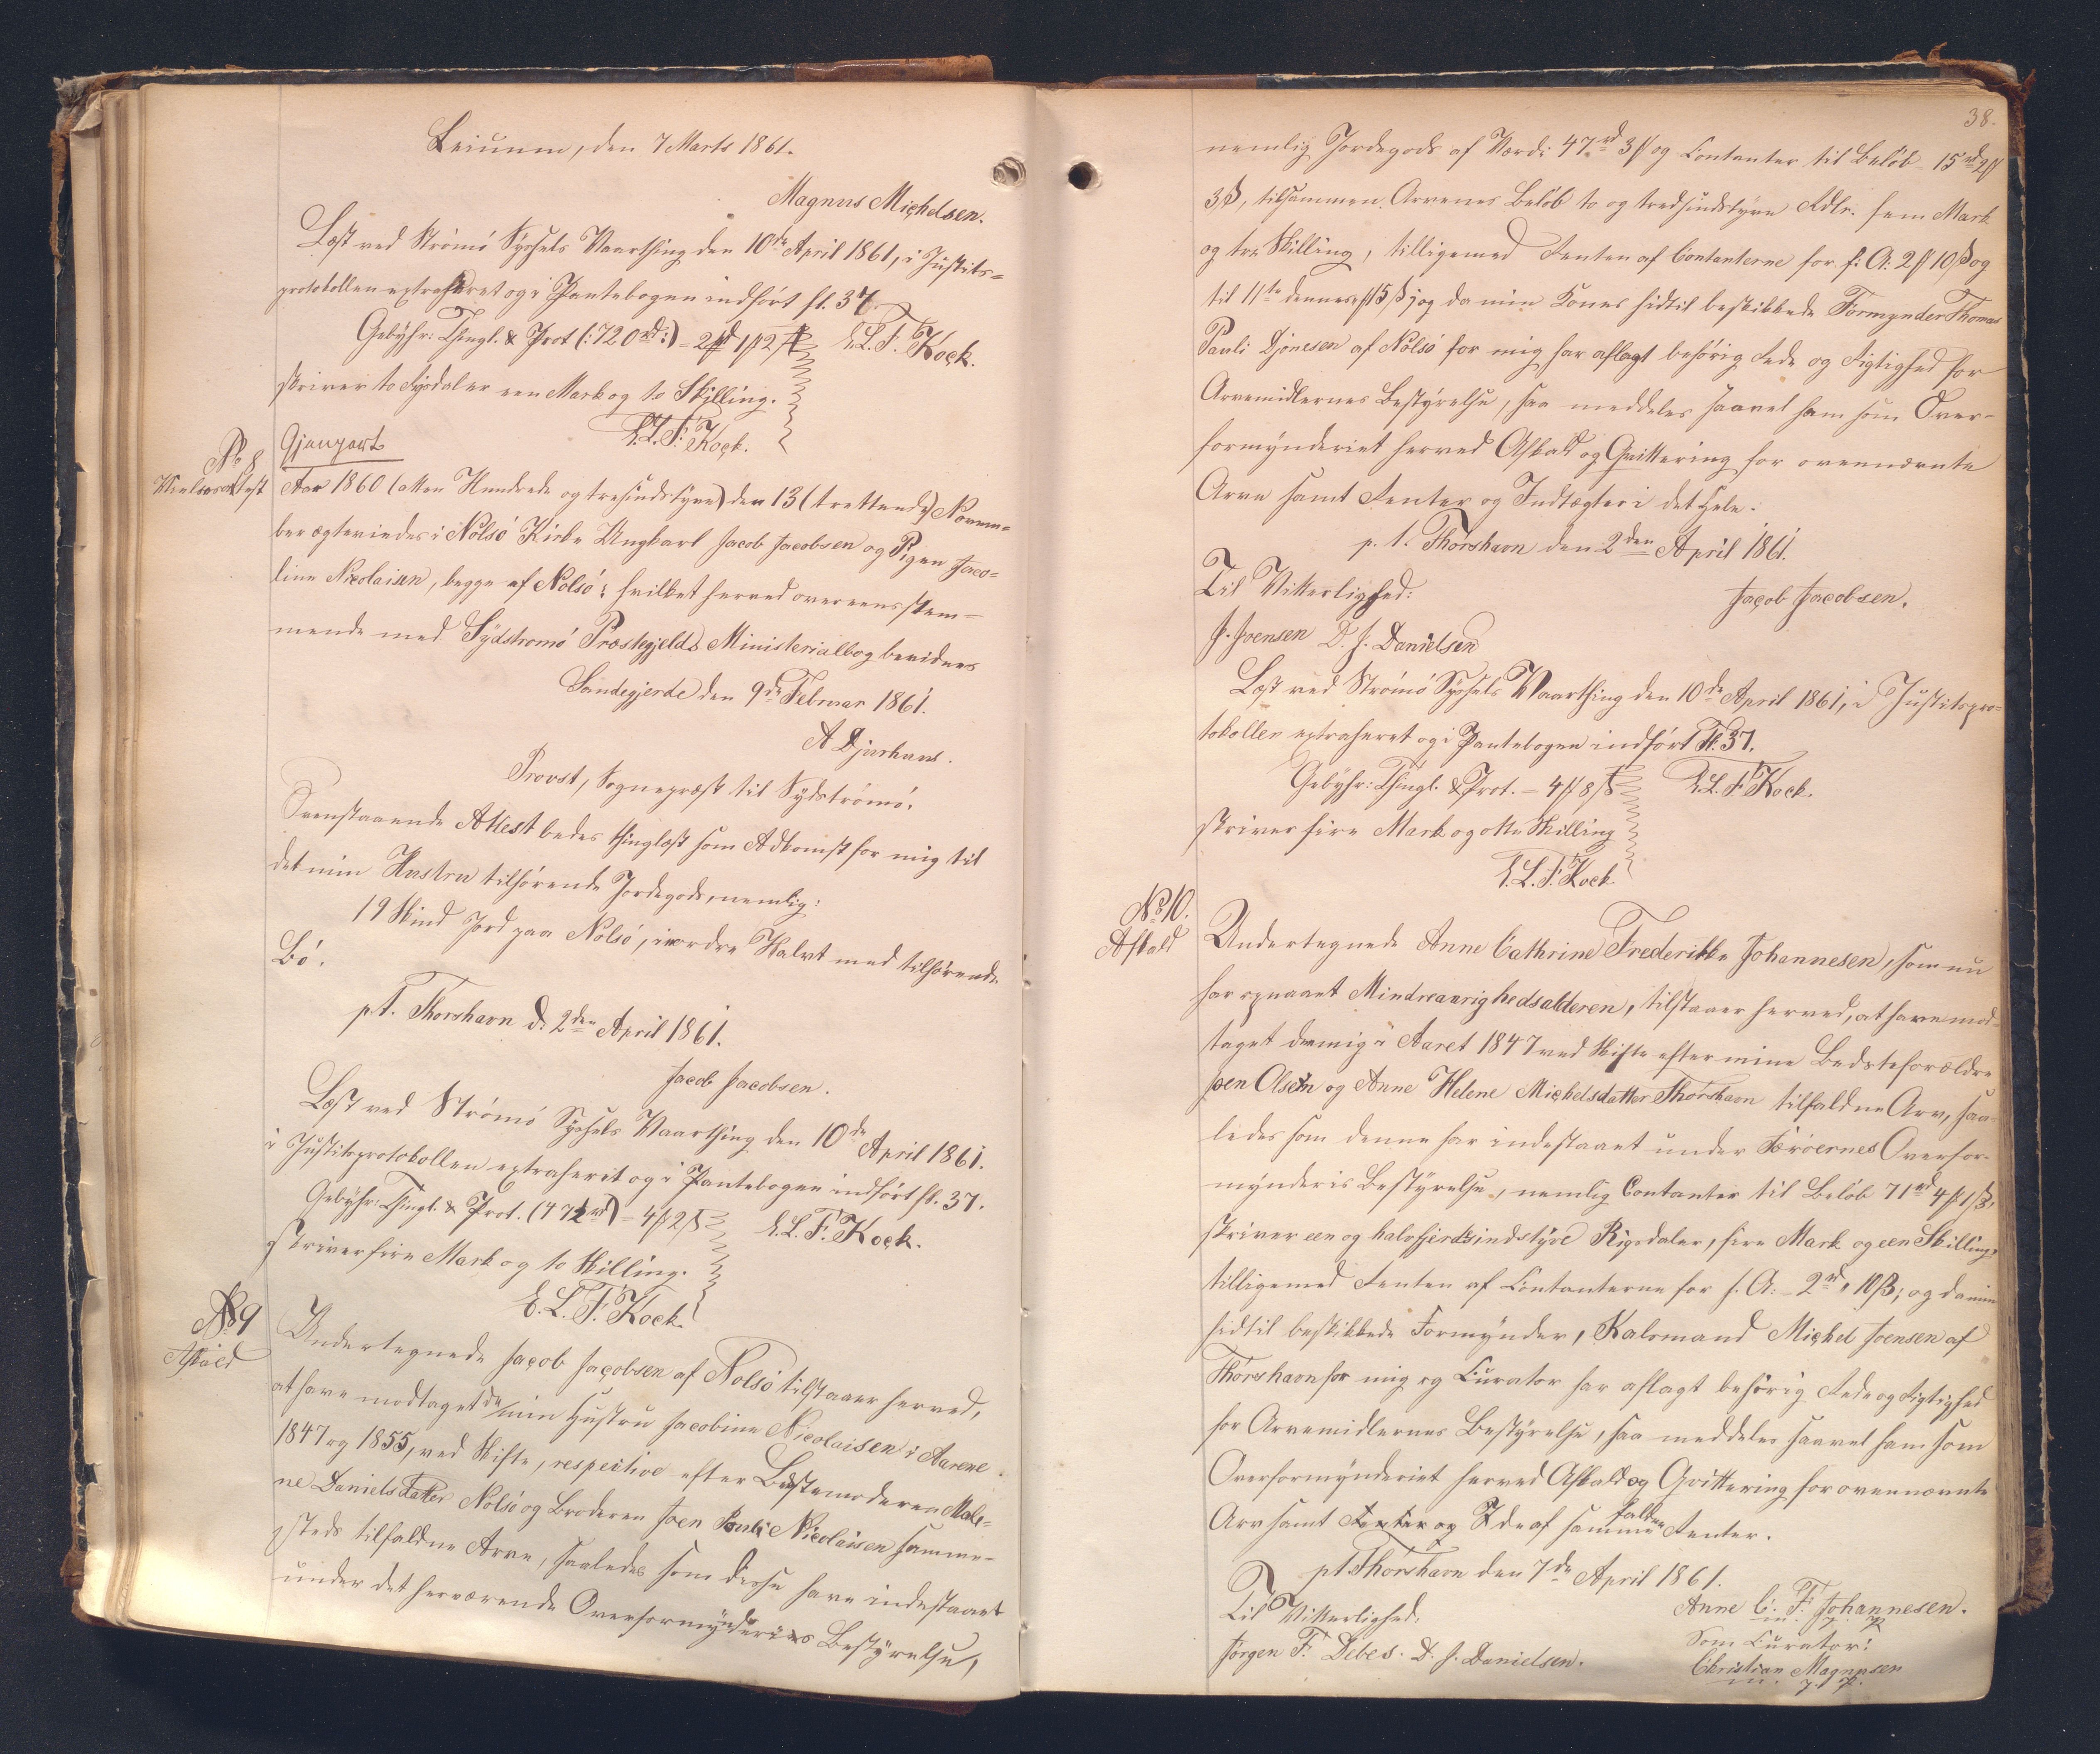 Leiuum, den 7 Marts 1861.
Magnus Michelsen.
Læst ved Strömö Syssels Vaarthing den 10de April 1861, i Justits=
protokollen extraheret og i Pantebogen indfört fl. 37.
Gebyhr: Thingl. & Prot (:720rd:) = 2rd 1 ₻ 2 ß E.L.F. Kock.
skriver to Rigsdaler een Mark og to Skilling.
E.L.F. Kock.
No 8
Vielsesattest
Gjenpart
Aar 1860 (atten Hundrede og tresindstyve) den 13 (trettende) Novem=
ber ægteviedes i Nolsö Kirke Ungkarl Jacob Jacobsen og Pigen Jaco=
bine Nicolaisen, begge af Nolsö; hvilket herved overeensstem=
mende med Sydstromö Præstegjelds Ministerialbog bevidnes
Sandegjerde den 9de Februar 1861.
A Djurhuus.
Provst, Sognepræst til Sydströmö.
Ovenstaaende Attest bedes thinglæst som Adkomst for mig til
det min Hustru tilhörende Jordegods, nemlig:
19 Skind Jord paa Nolsö, i nordre Halvt med tilhörende
Bö.
pt. Thorshavn d. 2den April 1861.
Jacob Jacobsen.
Læst ved Strömö Syssels Vaarthing den 10de April 1861.
i Justitsprotokollen extraherit og i Pantebogen indfört fl. 37.
Gebyhr: Thingl. & Prot. (472rd) = 4 ₻ 2 ß E.L.F. Kock.
skriver fire Mark og to Skilling.
E.L.F. Kock.
No 9
Afkald
Undertegnede Jacob Jacobsen af Nolsö tilstaaer herved,
at have modtaget de min Hustru Jacobine Nicolaisen i Aarene
1847 og 1855, ved Skifte, respective efter Bestemoderen Male=
ne Danielsdatter Nolsö og Broderen Joen Pauli Nicolaisen samme=
steds tilfaldne Arve, saaledes som disse have indestaaet
under det herværende Overformynderies Bestyrelse,
38.
nemlig Jordegods af Værdi 47rd 3 ₻ og Contanter til Belöb 15rd 2 ₻
3 ß, tilsammen Arvenes Belöb to og tredsindstyve Rdlr. fem Mark
og tre Skilling, tilligemed Renten af Contanterne for f: A: 2 ₻ 10 ß og
til 11te dennes ₻ 15 ß; og da min Kones hidtil beskikkede Formynder Thomas
Pauli Djonesen af Nolsö for mig har aflagt behörig Rede og Rigtighed for
Arvemidlernes Bestyrelse, saa meddeles saavel ham som Over-
formynderiet herved Afkald og Qvittering for ovennævnte
Arve samt Renter og Indtægter i det Hele.
p. t. Thorshavn den 2den April 1861.
Til Vitterlighed:
Jacob Jacobsen.
J. Joensen D. J. Danielsen
Læst ved Strömö Syssels Vaarthing den 10de April 1861, i Justitspro=
tokollen extraheret og i Pantebogen indfört fl. 37.
Gebyhr: Thingl. & Prot. = 4 ₻ 8 ß E.L.F. Kock.
skriver fire Mark og otte Skilling
E.L.F. Kock
No 10.
Afkald
Undertegnede Anne Cathrine Frederikke Johannesen, som nu
har opnaaet Mindreaarighedsalderen, tilstaaer herved, at have mod=
taget den mig i Aaret 1847 ved Skifte efter mine Bedsteforældre
Joen Olsen og Anne Helene Michelsdatter Thorshavn tilfaldne Arv, saa=
ledes som denne har indestaaet under Færöernes Overfor=
mynderis Bestyrelse, nemlig Contanter til Belöb 71rd 4 ₻ 1 ß,
skriver een og halvfjerdsindstyve Rigsdaler, fire Mark og een Skilling,
tilligemed Renten af Contanterne for f. A: 2rd " 10 ß; og da min
hidtil beskikkede Formynder, Kalsmand Michel Joensen af
Thorshavn for mig og Curator har aflagt behörig Rede og Rigtighed
for Arvemidlernes Bestyrelse, saa meddeles saavel ham som
Overformynderiet herved Afkald og Qvittering for ovennævnte
Arv samt Renter og de af samme faldne Renter.
pt. Thorshavn den 7de April 1861.
Til Vitterlighed:
Anne C. F. Johannesen.
m. p. p.
Jörgen F. Debes. D. J. Danielsen.
Som Curator:
Christian Magnusen
m. p. p.